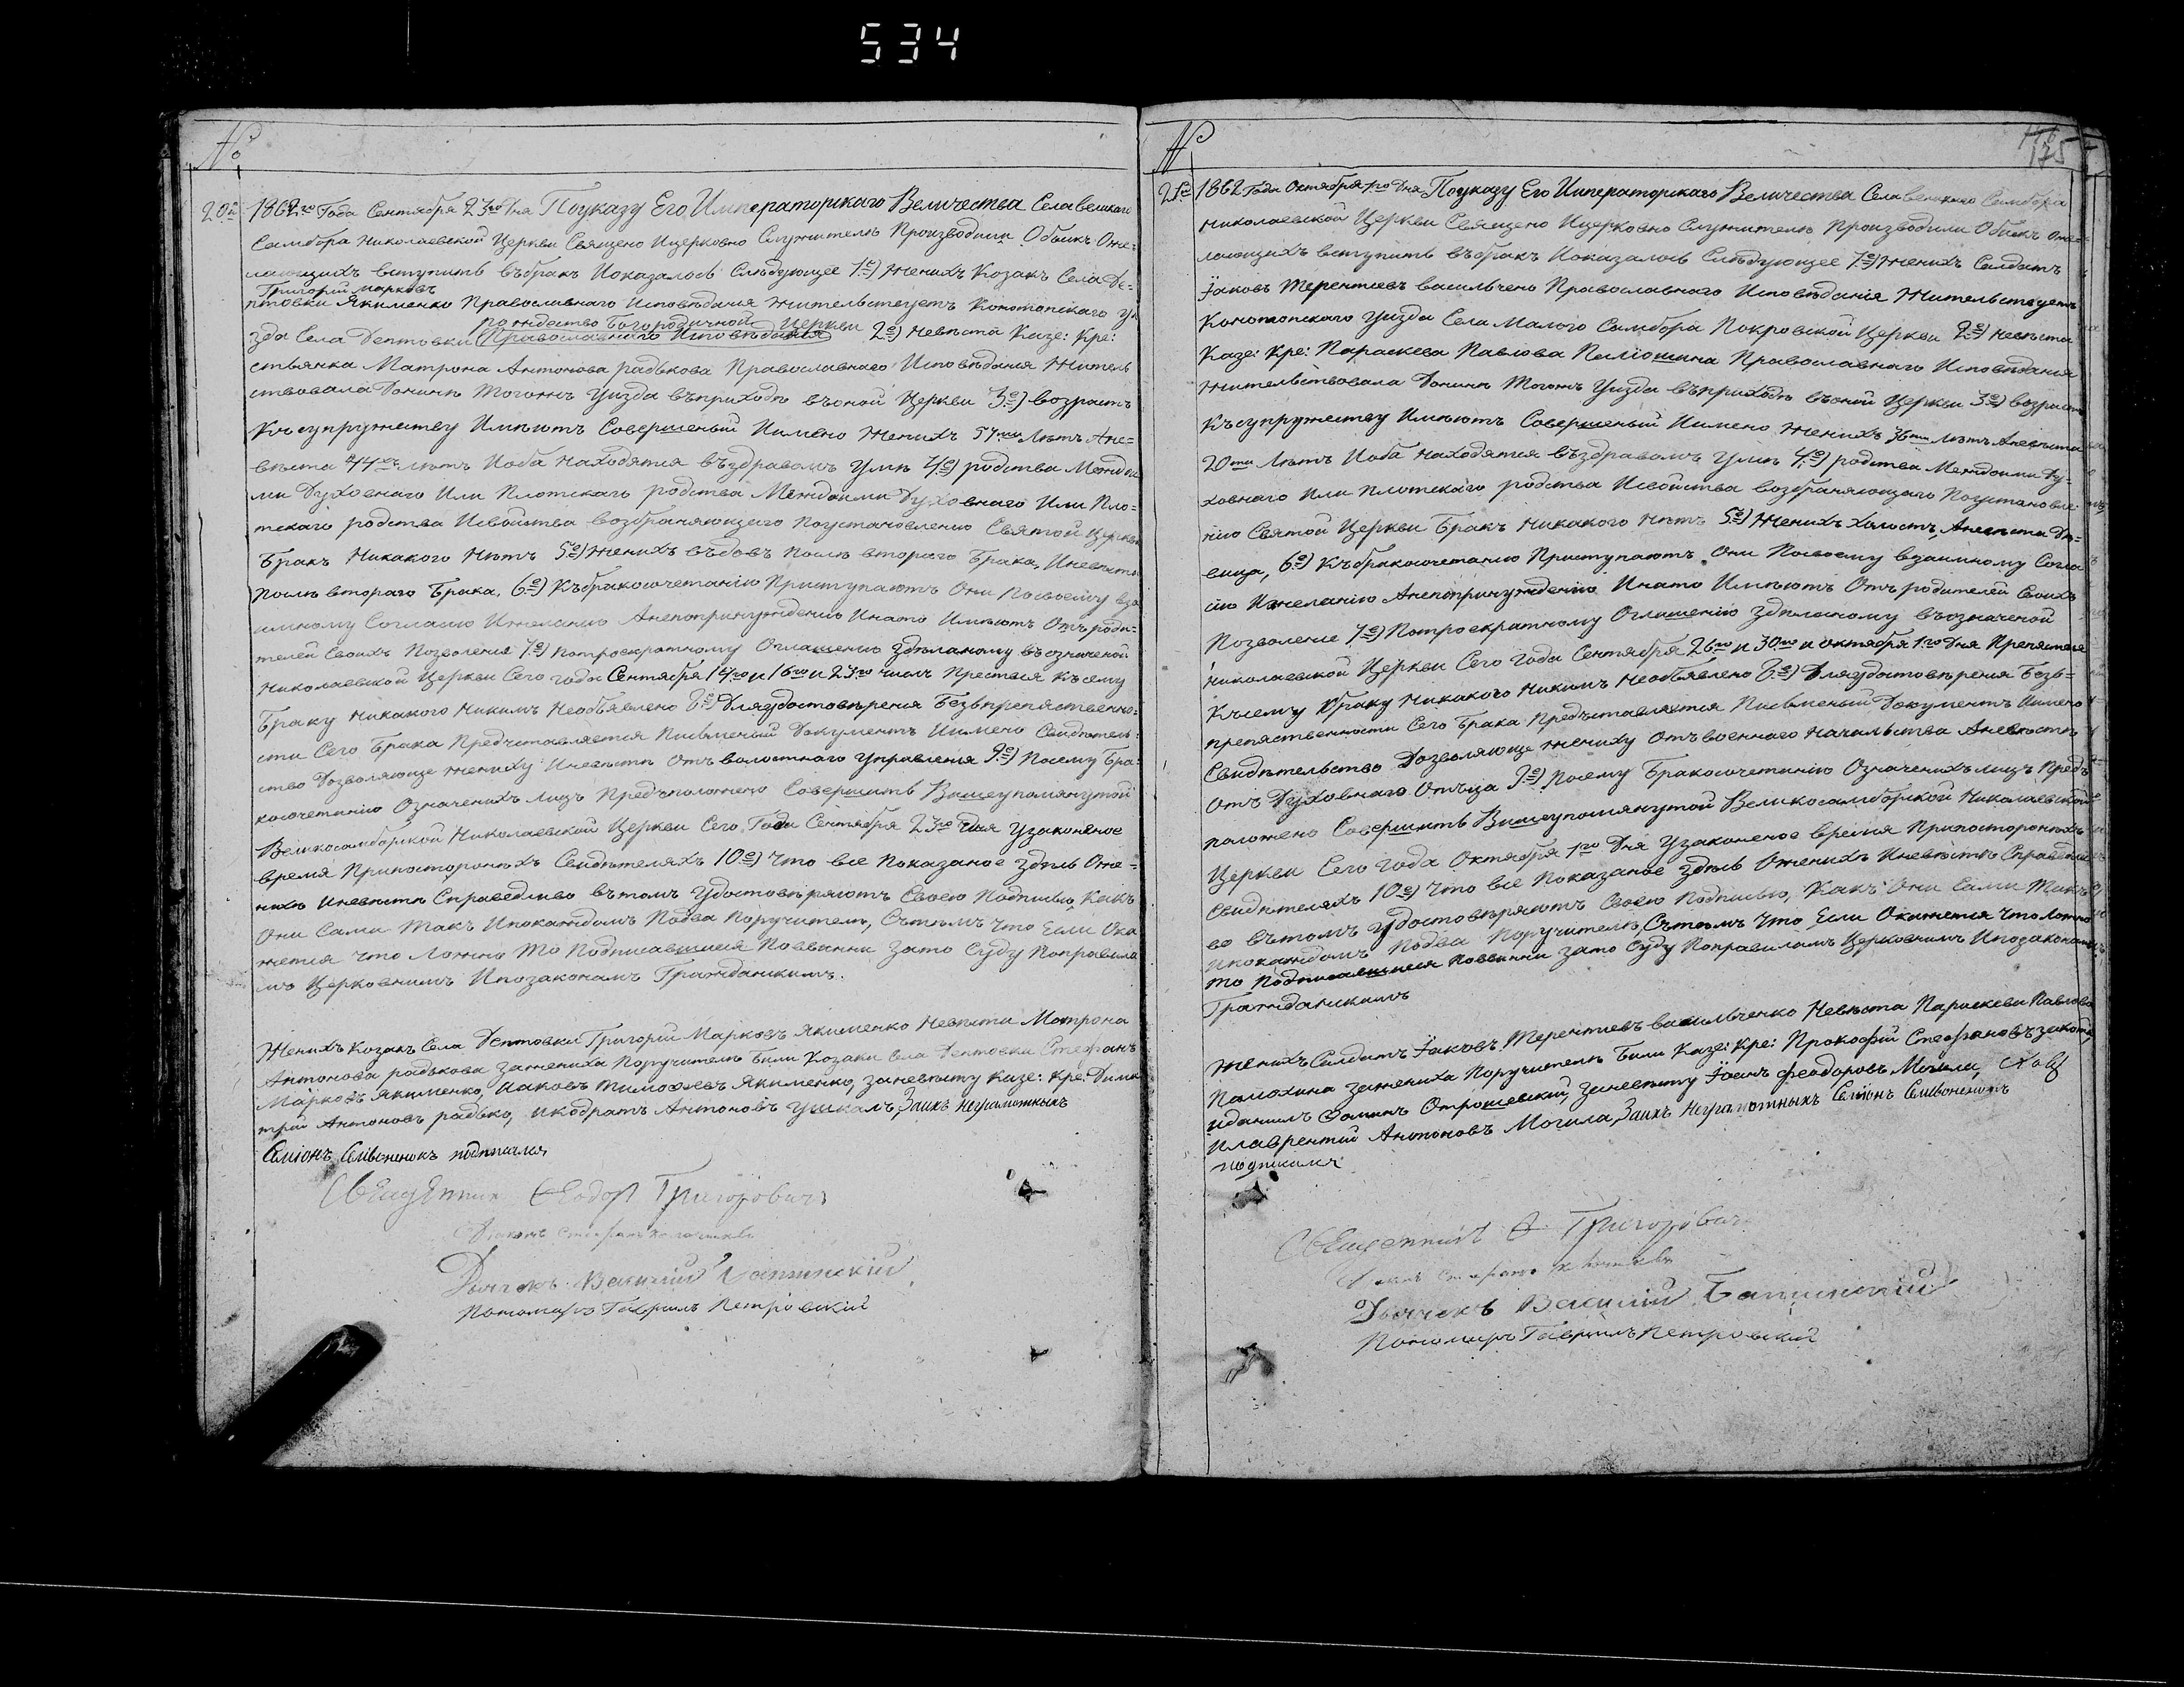 534
№
20й 1862го Года Сентября 23го дня Поуказу Его Императорскаго Величества Села великаго
Самбора Николаевской Церкви Священо Ицерковно Служителю Производили Обыкъ Оже=
лающихъ вступить въбракъ Иоказалось Слѣдующее 1е) Женихъ Козакъ Села Де=
Григорий Марковъ
птовки Якименко Православнаго Исповѣдания Жительствуетъ Конотопскаго уѣ
рождество Богородичной Церкви
зда Села Дептовки Православнаго Исповѣдания 2е) Невѣста Казе: Кре:
стьянка Матрона Антонова радькова Православнаго Исповѣдания Житель
ствовала Донинѣ Тогожъ Уизда въприходѣ въоной Церкви 3е) возрастъ
Късупружеству Имѣютъ Совершеный Иимено Женихъ 54 Лѣтъ Ане=
вѣста 44 лѣтъ Иоба Находятся въздравомъ Умѣ 4е) родства Междои
ми Духовнаго Или Плотскаго родства Междоими Духовнаго Или Пло=
тскаго родства Исвойства возбраняющаго Поустановлению Святой Церкви
Бракъ Никакого Нѣтъ 5е) Женихъ въдовъ После втораго Брака, Иневѣста
Послѣ втораго Брака, 6е) Къбракосочетанию Приступаютъ Они Посвоему вза
имному Согласию Ижеланию Анепопринуждению Инато Имѣютъ Отъ роди=
телей Своихъ Позволения 7е) Потроекратному Оглашению Здѣланому въозначеной
Николаевской Церкви Сего года Сентября 14го и 16го и 23го числъ Препяся Късему
Браку Никакого Никимъ Необъявлено 8е) Дляудостовѣрения Безъпрепяственно=
сти Сего Брака Предъставляется Письменый Документъ Иимено Свидѣтель=
ство Дозволяюще жениху Иневѣстѣ Отъ волостнаго Управления 9е) Посему Бра=
косочетанию Означенихъ лицъ Предъположено Совершить Вишеупомянутой
Великосамборской Николаевской Церкви Сего Года Сентября 23го дня Узаконеное
время Припостороннихъ Свидѣтеляхъ 10е) Что все Показаное здѣсь Оже=
нихѣ Иневѣстѣ Справедливо въ томъ Удостовѣряютъ Своею Подписью, Какъ
Они Сами Такъ Ипокаждомъ Подва Поручителю, Сътемъ что Если Ока
жется что Ложно То Подписавшиеся Повинни зато Суду Поправила
мъ Церковнимъ Ипозаконамъ Гражданскимъ.
Женихъ Козакъ Села Дептовки Григорий Марковъ Якименко Невѣста Матрона
Антонова радькова зажениха Поручителю Били Козаки села Дептовки Стефанъ
Марковъ Якименко, Иаковъ Тимофеевъ Якименко, заневѣсту Казе: Кре: Дими
трий Антоновъ радько, икодратъ Антоновъ Ушкалъ, Заихъ неграмотныхъ
Симіонъ Симоненокъ подписался
Священник Феодор Григорович
Диаконъ Стефанъ
Дьячекъ Василий
Пономарь Гаврилъ Петровский
№
175
21й 1862 Года Октября 1го дня Поуказу Его Императорскаго Величества Села великаго Самбора
Николаевской Церкви Священо Ицерковно Служителю Производили Обыкъ Оже=
лающихъ вступить въбракъ Иоказалось Слѣдующее 1е) Женихъ Салдатъ
Іаковъ Терентиевъ васильчено Православнаго Исповѣданія Жительствуетъ
Конотопскаго Уизда Села Малого Самбора Покровской Церкви 2е) Невѣста
Казе: Кре: Параскева Павлова Православнаго Исповѣдания
Жительствовала Донинѣ Тогожъ Уизда въприходѣ въоной Церкви 3е) возрастъ
Късупружеству Имѣютъ Совершеный Иимено Женихъ 36ти Лѣтъ Аневѣста
20ти Лѣтъ Иоба Находятся въздравомъ Умѣ 4е) родства Междоими Ду=
ховнаго Или Плотскаго родства Исвойства возбраняющаго Поустановле
нию Святой Церкви Бракъ Никакого Нѣтъ 5е) Женихъ Холостъ, Аневѣста Дѣ=
вица, 6е) Къбракосочетанию Приступаютъ Они Посвоему взаимному Согла
сию Ижеланию Анепопринуждению Инато Имѣютъ Отъ родителей Своихъ
Позволение 7е) Потроекратному Оглашению Здѣланому въозначеной
Николаевской Церкви Сего года Сентября 26го и 30го и октября 1го дня Препятся
Късему Браку Никакого Никимъ Необъявлено 8е) Дляудостовѣрения Безъ=
препяственности Сего Брака Предъставляется Письменый Документъ Иимено
Свидѣтельство Дозволяюще жениху Отъ военнаго Начальства Аневѣстѣ
Отъ Духовнаго Отъца 9е) Посему Бракосочетанию Означенихъ лицъ Предъ
положено Совершить Вишеупомянутой Великосамборской Николаевской
Церкви Сего года Октября 1го Дня Узаконеное время Припостороннихъ
Свидѣтеляхъ 10е) Что все Показаное здѣсь Оженихѣ Иневѣстѣ Справедли
во въ томъ Удостовѣряютъ Своею Подписью, Какъ Они Сами Такъ
Ипокаждомъ Подва Поручителю, Сътемъ Что Если Окажется Что Ложно
то Подписавшиеся Повинни зато Суду Поправиламъ Церковнимъ Ипозаконамъ
Гражданскимъ
Женихъ Салдатъ Іаковъ Терентиевъ васильченко Невѣста Параскева Павлова
зажениха Поручителю Били Казе: Кре: Прокофий Стефановъ
иданилъ Фоминъ Отрошевский, заневѣсту Іоанъ Феодоровъ Могила,
илаврентий Антоновъ Могила, Заихъ Неграмотныхъ Симіонъ Симоненокъ
подписался
Священникъ Ф. Григорович
Диаконъ Стефанъ
Дьячекъ Василий
Пономарь Гаврилъ Петровский